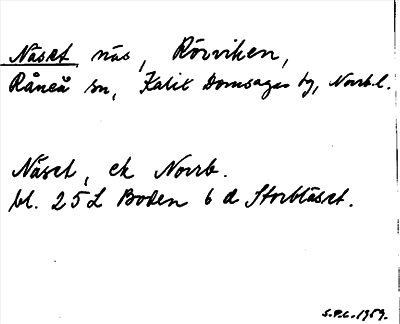 Näset, näs, Rörviken,
Råneå sn, Kalix Domsagas tg, Norrb. l.
Näset, ek Norrb.
bl. 25L Boden 6 d Storbläset.
S.P.C. 1959.